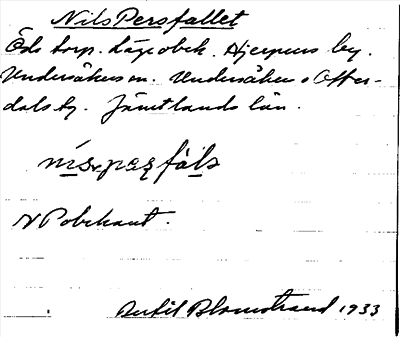 NilsPersfallet
Öds torp. Läge obek. Hjerpens by.
Undersåkers sn. Undersåkers o Offer-
dals tg. Jämtlands län.
N Pobekant.
Bertil Blomstrand 1933